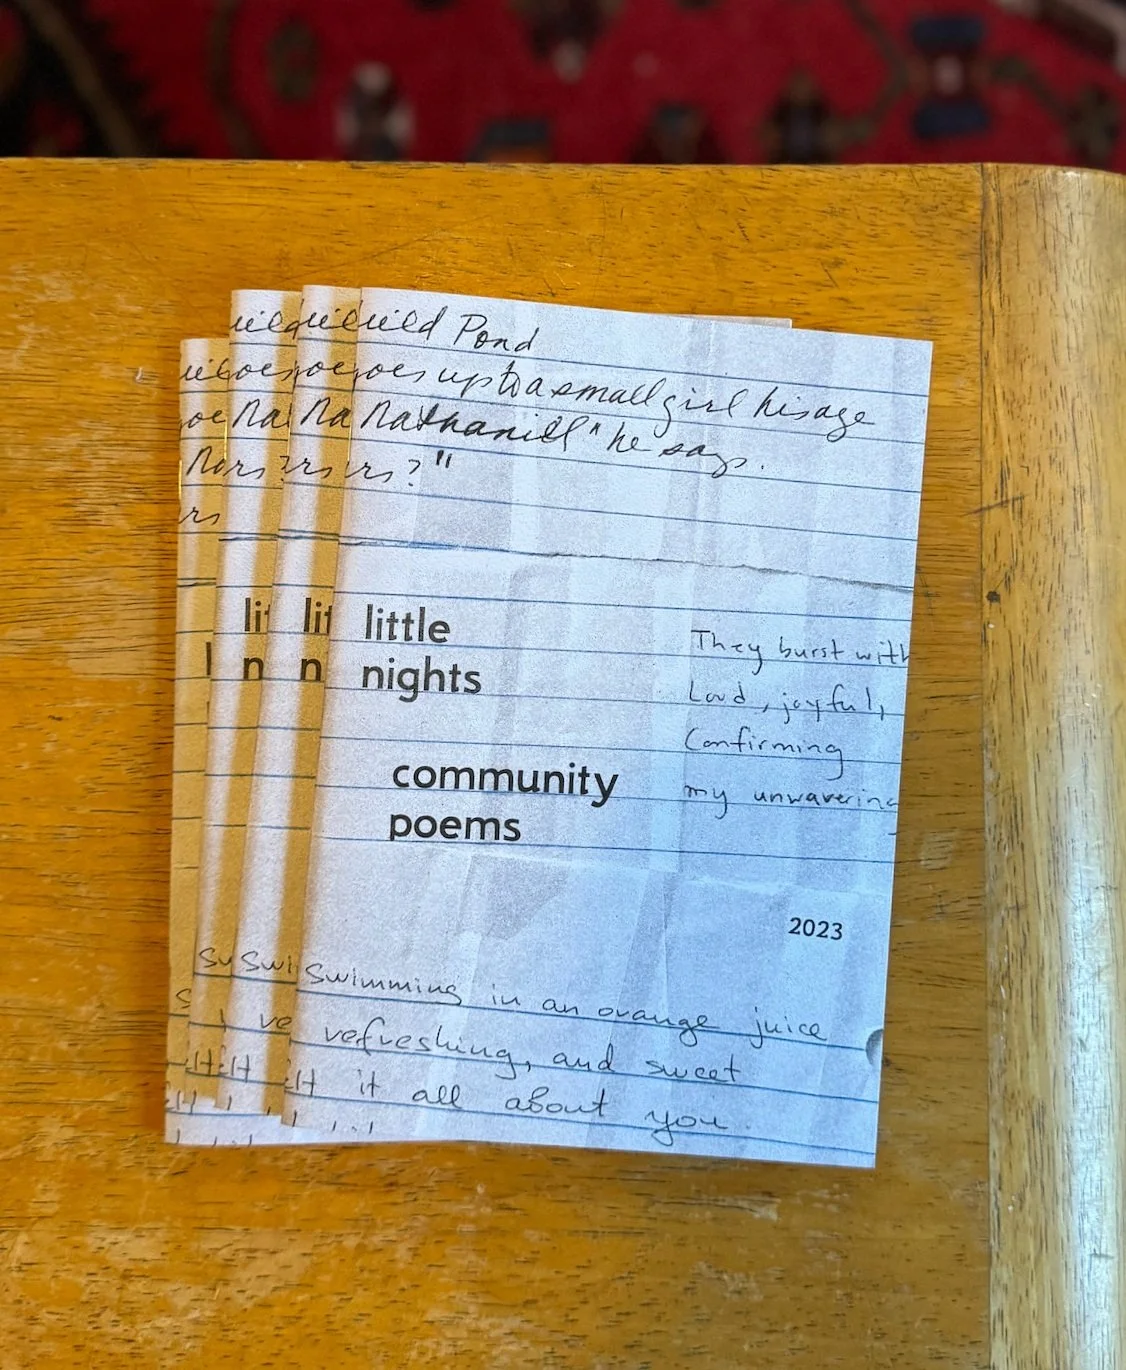 Pond
oes up to a small girl his age
Nathaniel" he says.
rs?"
little
nights
They burst with
Loud, joyful,
Confirming
my unwavering
community
poems
2023
Swimming in an orange juice
refreshing, and sweet
it all about you.